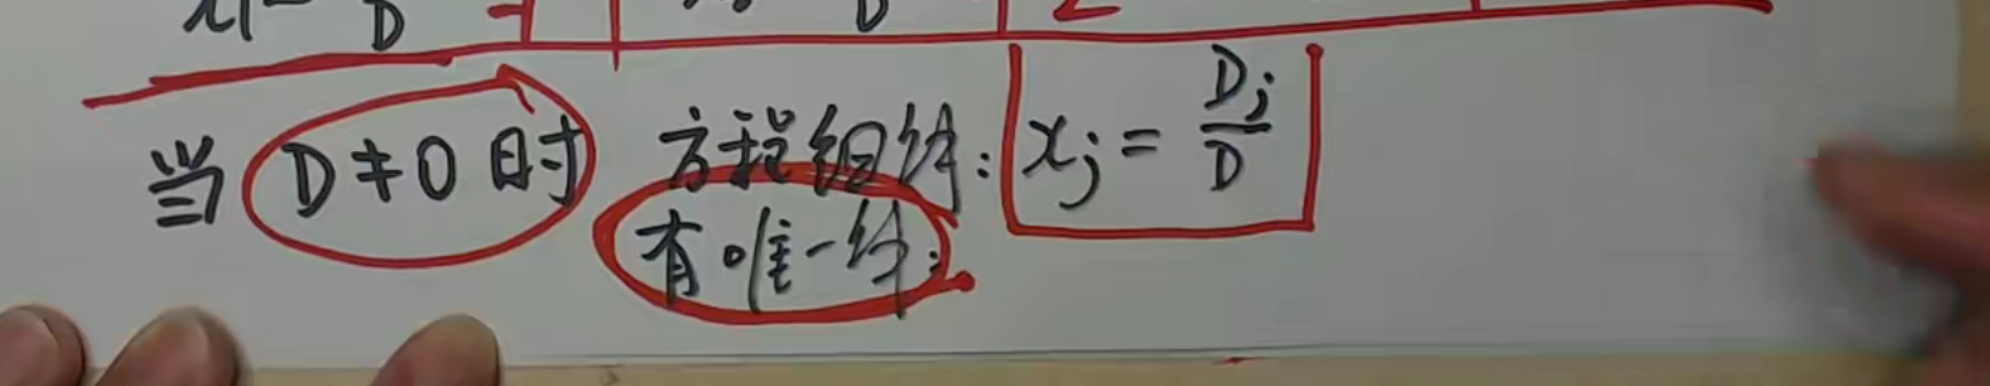 当 D≠0 时 方程组解: xj = Dj/D
有唯一解: